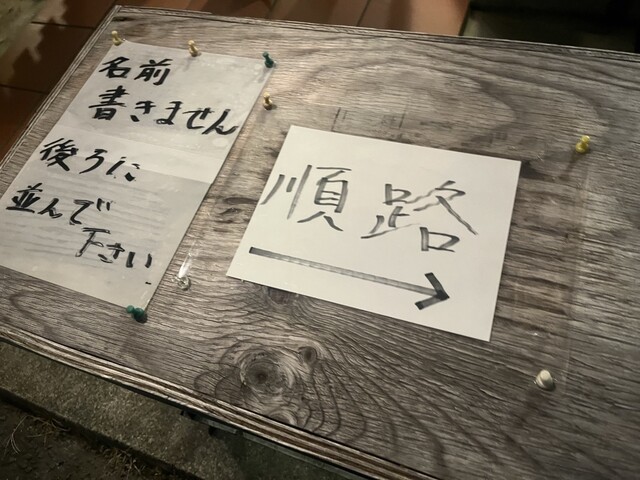 名前
書きません
後ろに
並んで
下さい
順路
→